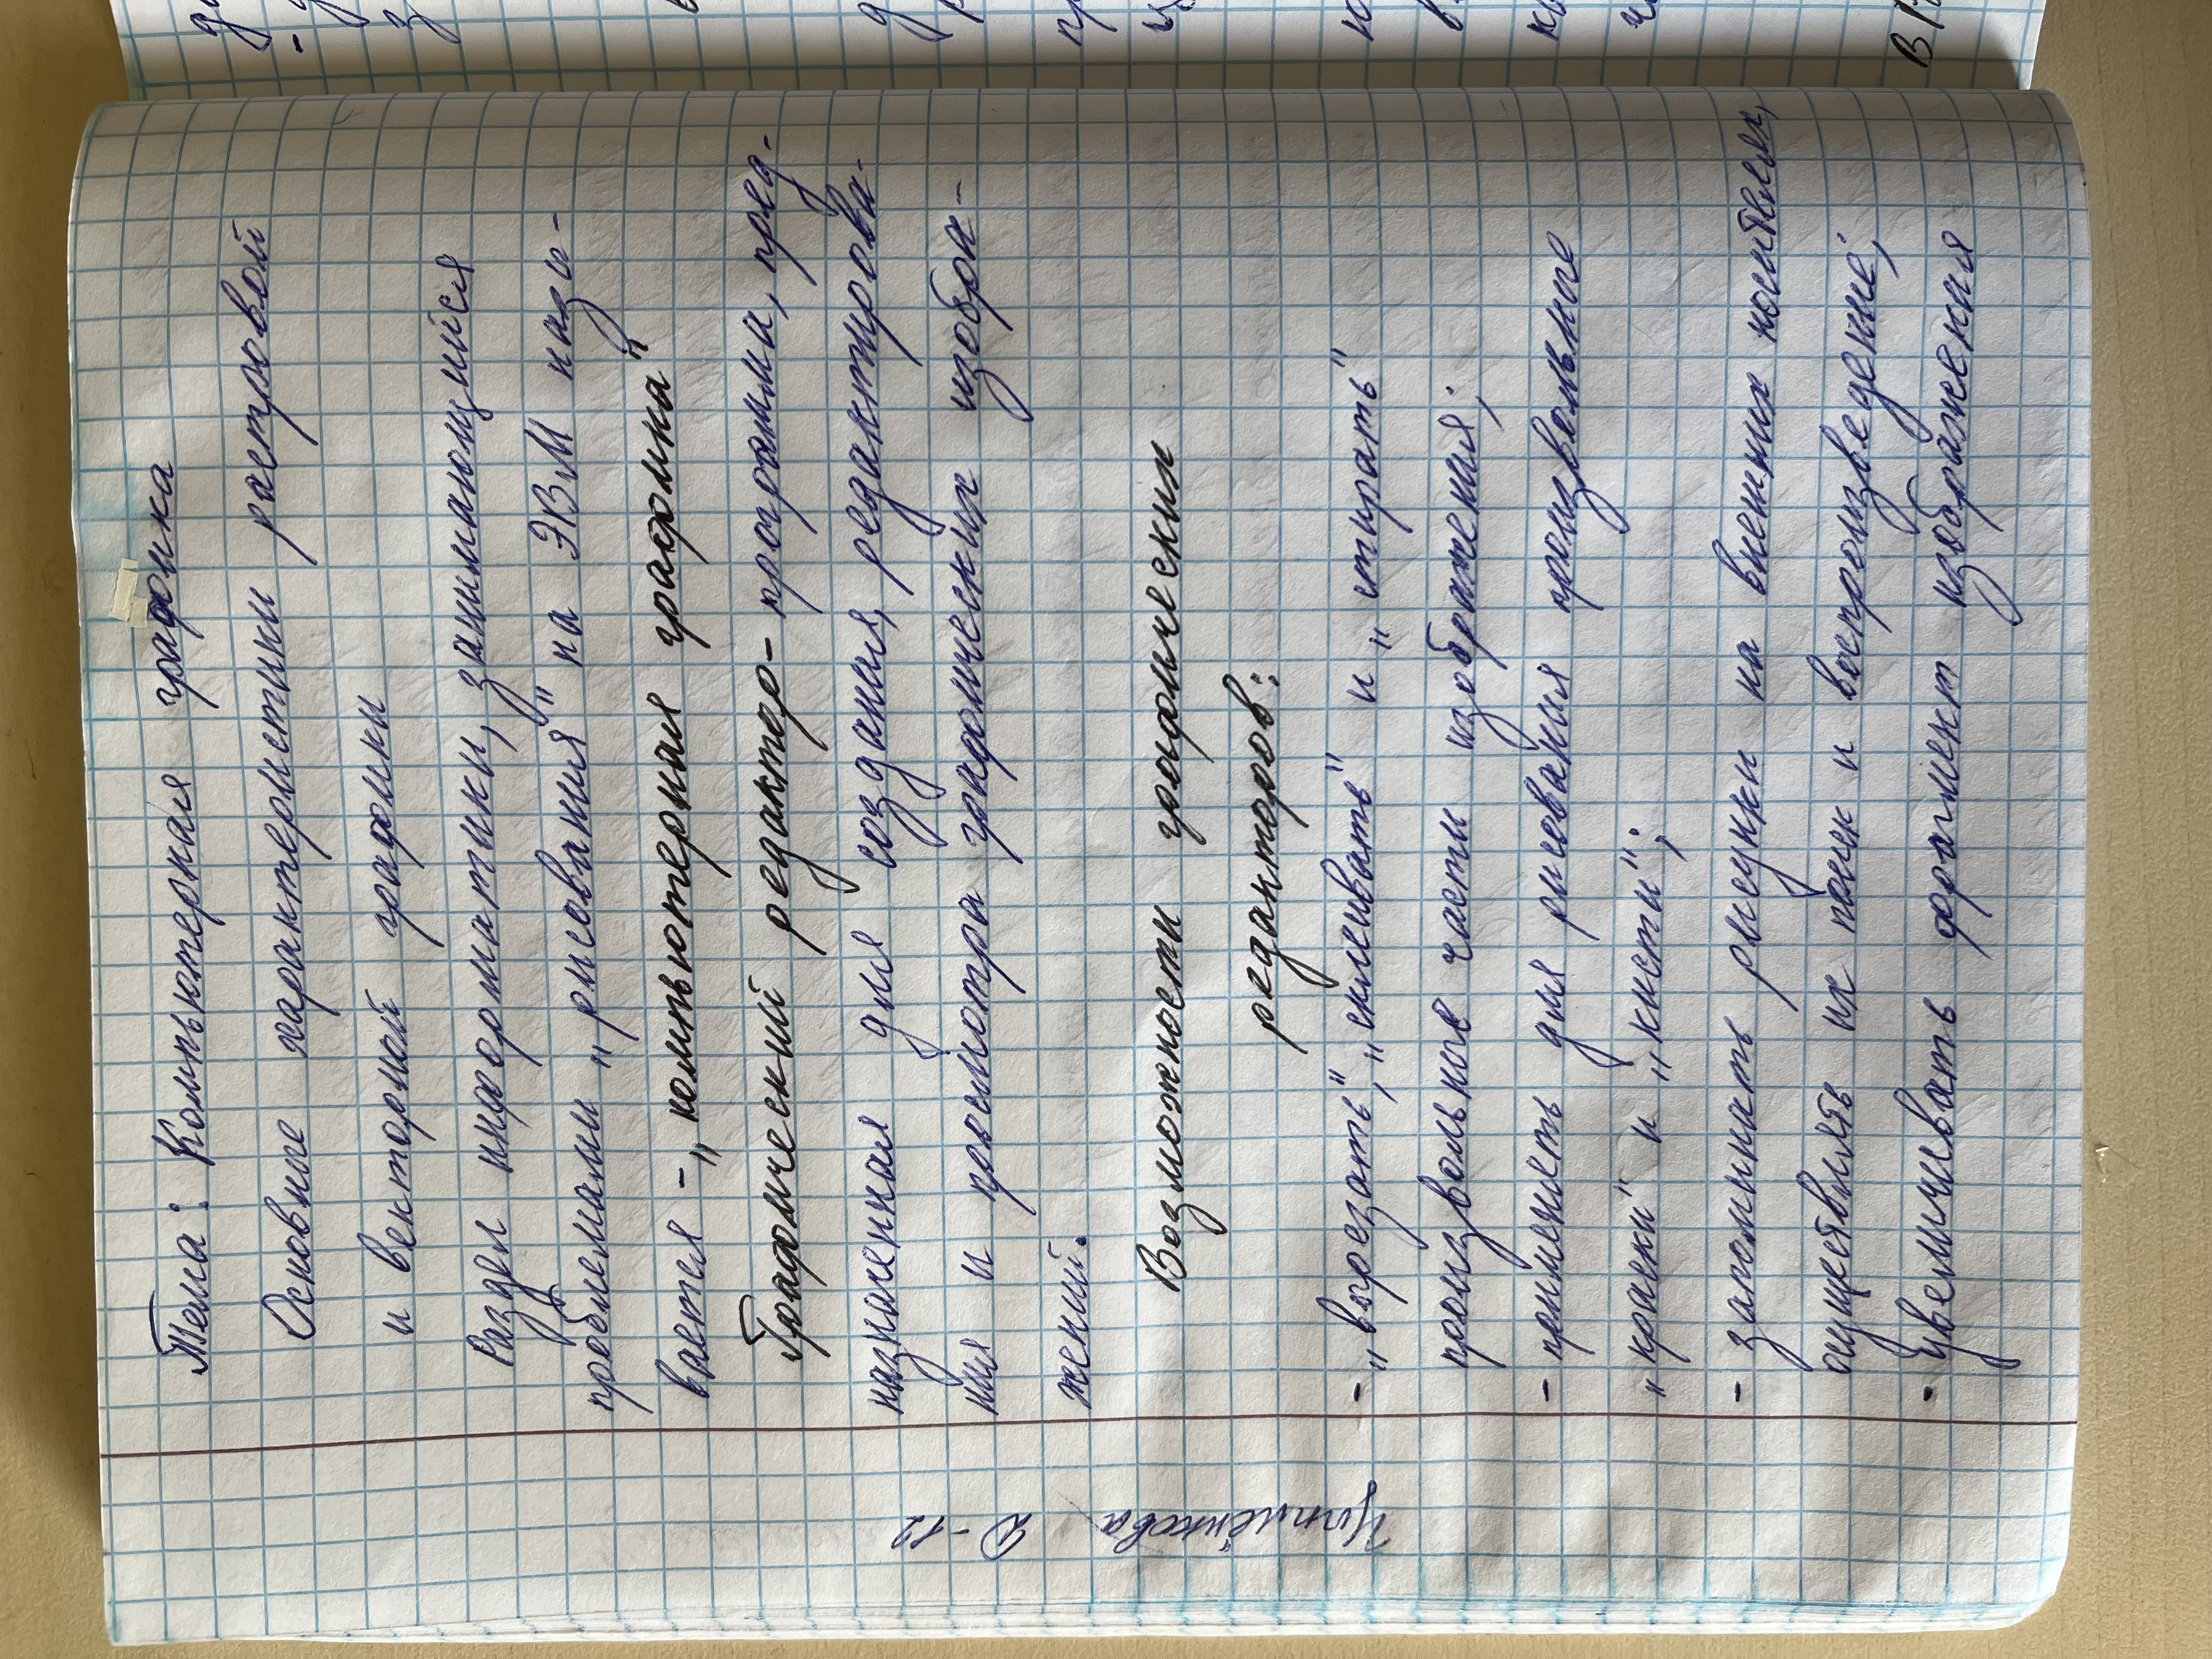 Тема: Компьютерная графика
Основные характеристики растровой
и векторной графики
Раздел информатики, занимающийся
проблемами „рисования" на ЭВМ назы-
вается - „компьютерная графика"
Графический редактор - программа, пред-
назначенная для создания, редактирова-
ния и просмотра графических изобра-
жений.
Возможности графических
редакторов:
- „вырезать", „склеивать" и „стирать"
произвольные части изображения;
- применять для рисования произвольные
„краски" и „кисти";
- запоминать рисунки на внешних носителях,
осуществлять их поиск и воспроизведение;
- увеличивать фрагмент изображения
Д-12